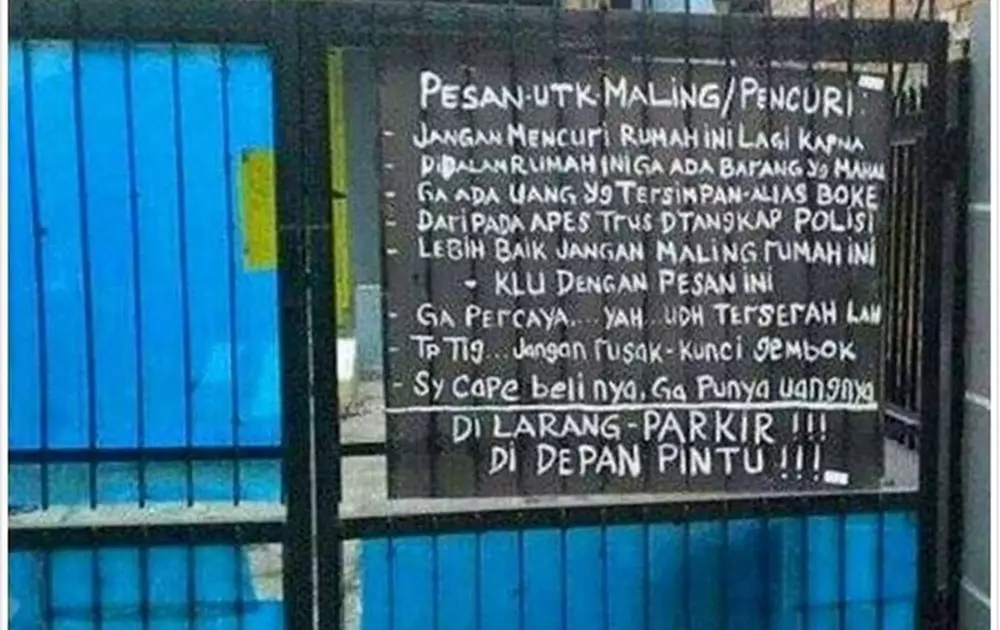 PESAN-UTK-MALING/PENCURI:
- JANGAN MENCURI RUMAH INI LAGI KARNA
- DIDALAM RUMAH INI GA ADA BARANG Yg MAHAL
- GA ADA UANG Yg TERSIMPAN-ALIAS BOKE
- DARIPADA APES TRUS DTANGKAP POLISI
- LEBIH BAIK JANGAN MALING RUMAH INI
- KLU DENGAN PESAN INI
- GA PERCAYA....YAH...UDH TERSERAH LAH
- Tp Tlg...Jangan rusak-kunci gembok
- Sy Cape belinya, Ga Punya uangnya
DI LARANG-PARKIR !!!
DI DEPAN PINTU !!!